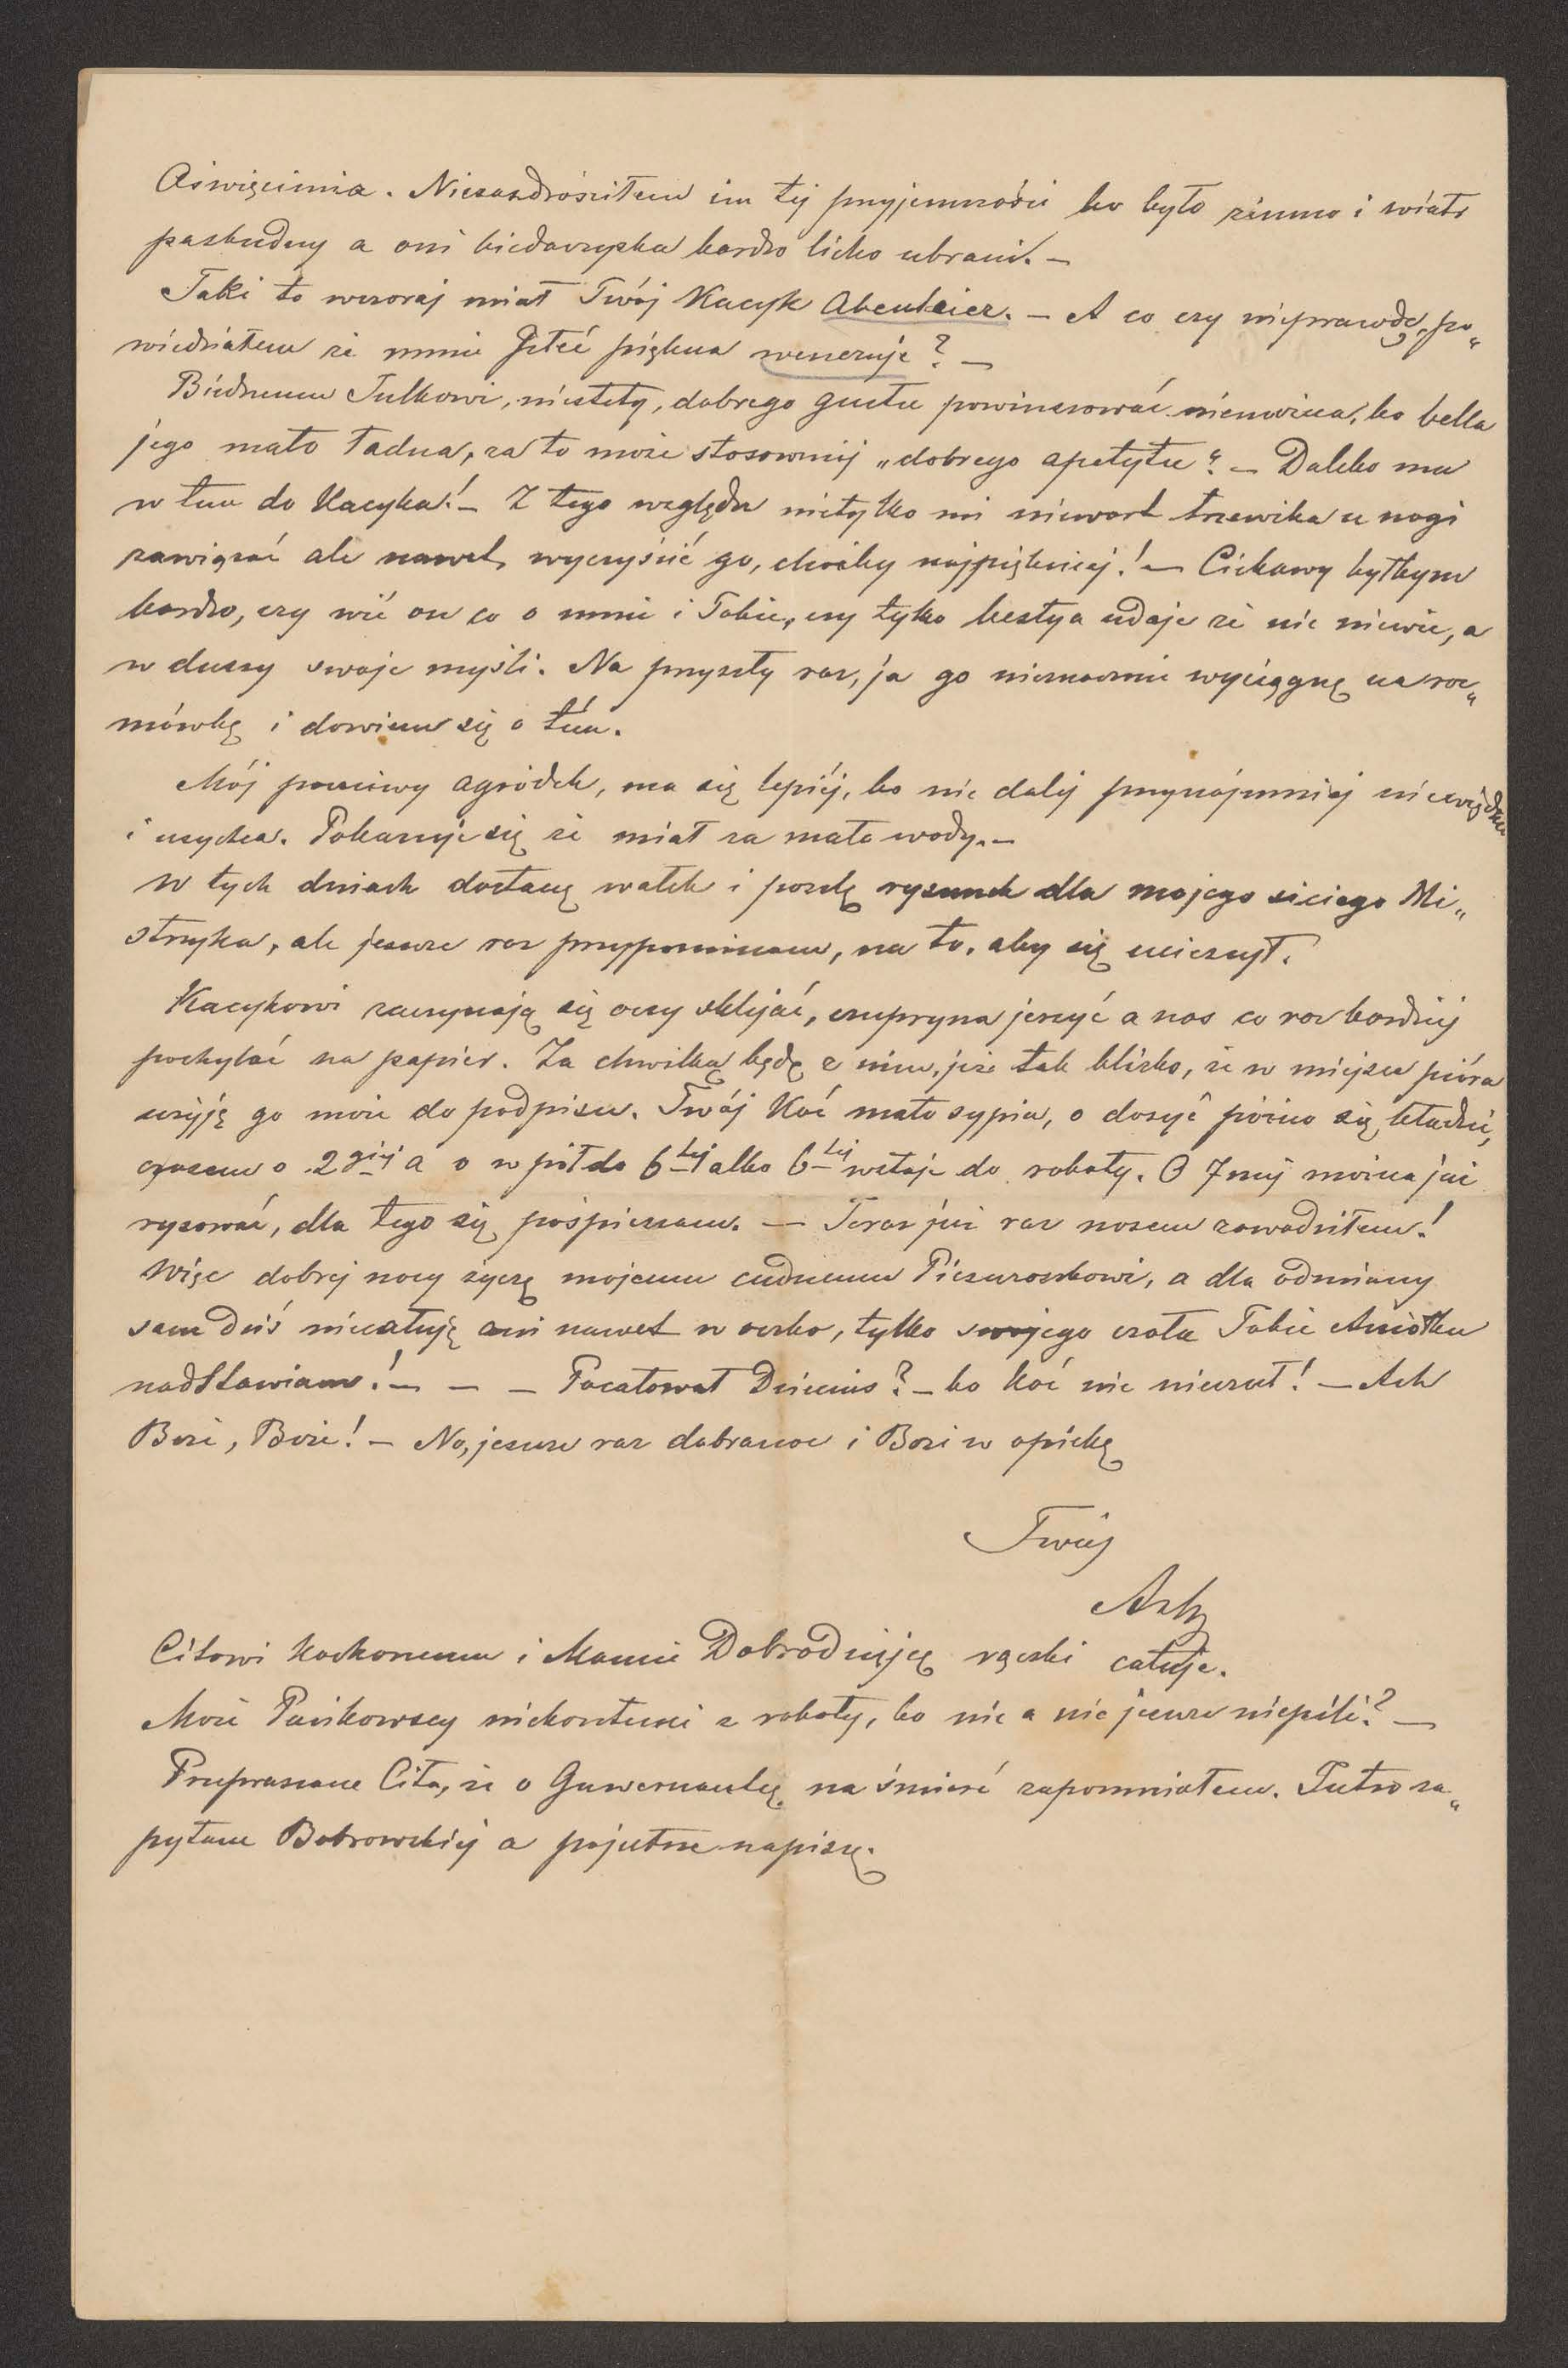 Oświęcimia. Niezazdrościłem im tej przyjemności bo było zimno i wiatr
paskudny a oni biedaczyska bardzo licho ubrani. —
Taki to wczoraj miał Twój Kacyk Abenteier. — A co czy nieprawdę, po„
wiedziałem że mnie płeć piękna weneruje? —
Biednemu Julkowi, niestety, dobrego gustu powinszować niemożna, bo bella
jego mało ładna, za to może stosowniej „dobrego apetytu“. — Daleko mu
w tem do Kacyka! — Z tego względu nietylko mi niewart trzewika u nogi
zawiązać ale nawet wyczyścić go, choćby najpiękniej! — Ciekawy byłbym
bardzo, czy wié on co o mnie i Tobie, czy tylko bestya udaje że nic niewie, a
w duszy swoje myśli. Na przyszły raz, ja go nieznacznie wyciągnę na roz„
mówkę i dowiem się o tém.
Mój poczciwy agródek, ma się lepiéj, bo nic daléj przynajmniej niewiędnie
i usycha. Pokazuje się że miał za mało wody. —
W tych dniach dostanę wałek i poszlę rysunek dla mojego siciego Mi„
strzyka, ale jeszcze raz przypominam, na to, aby się ucieszył.
Kacykowi zaczynają się oczy sklejać, czupryna jeżyć a nos co raz bardziéj
pochylać na papier. Za chwilkę będę z nim, już tak blizko, że w miejsce pióra
użyję go może do podpisu. Twój Koć mało sypia, o dosyć późno się kładzie,
czasem o 2giéj a o w pół do 6tej albo 6tej wstaje do roboty. O 7méj można już
rysować, dla tego się pośpieszam. — Teraz już raz nosem zawadziłem!
Więc dobrej nocy życzę mojemu cudnemu Pieszczoszkowi, a dla odmiany
sam dziś niecałuję ani nawet w oczko, tylko swojego czoła Tobie Aniołku
nadstawiam! — — — Pocałował Dzieciuś? — bo Koć nic nieczuł! — Ach
Boże, Boże! — No, jeszcze raz dobranoc i Bozi w opiekę
Twój
Citowi kochanemu i Mamie Dobrodziejce rączki całuję.
Może Pańkowscy niekontenci z roboty, bo nic a nic jeszcze niepili? —
Przepraszam Cita, że o Guwernantkę na śmierć zapomniałem. Jutro za„
pytam Bobrowskiéj a pojutrze napiszę.